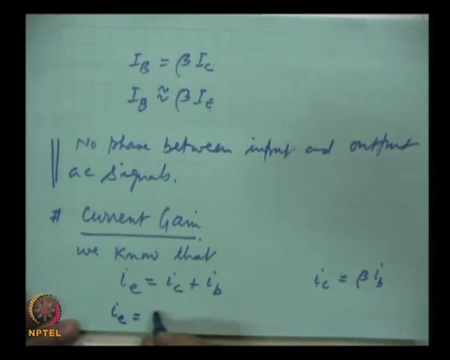 I_B = β I_C
I_B ≈ β I_E
No phase between input and output
ac signals.
# Current Gain
we know that
i_e = i_c + i_b    i_c = β i_b
i_e =
NPTEL